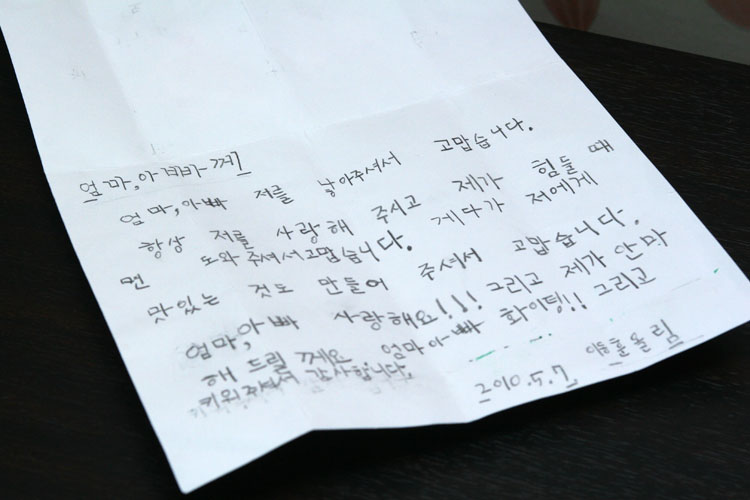 엄마,아빠께
엄마,아빠 저를 낳아주셔서 고맙습니다.
항상 저를 사랑해 주시고 제가 힘들때
면 도와주셔서고맙습니다. 게다가 저에게
맛있는 것도 만들어 주셔서 고맙습니다.
엄마,아빠 사랑해요!!! 그리고 제가 안마
해 드릴 께요 엄마아빠 화이팅!! 그리고
키워주셔서 감사합니다.
2010.5.7 이동훈올림